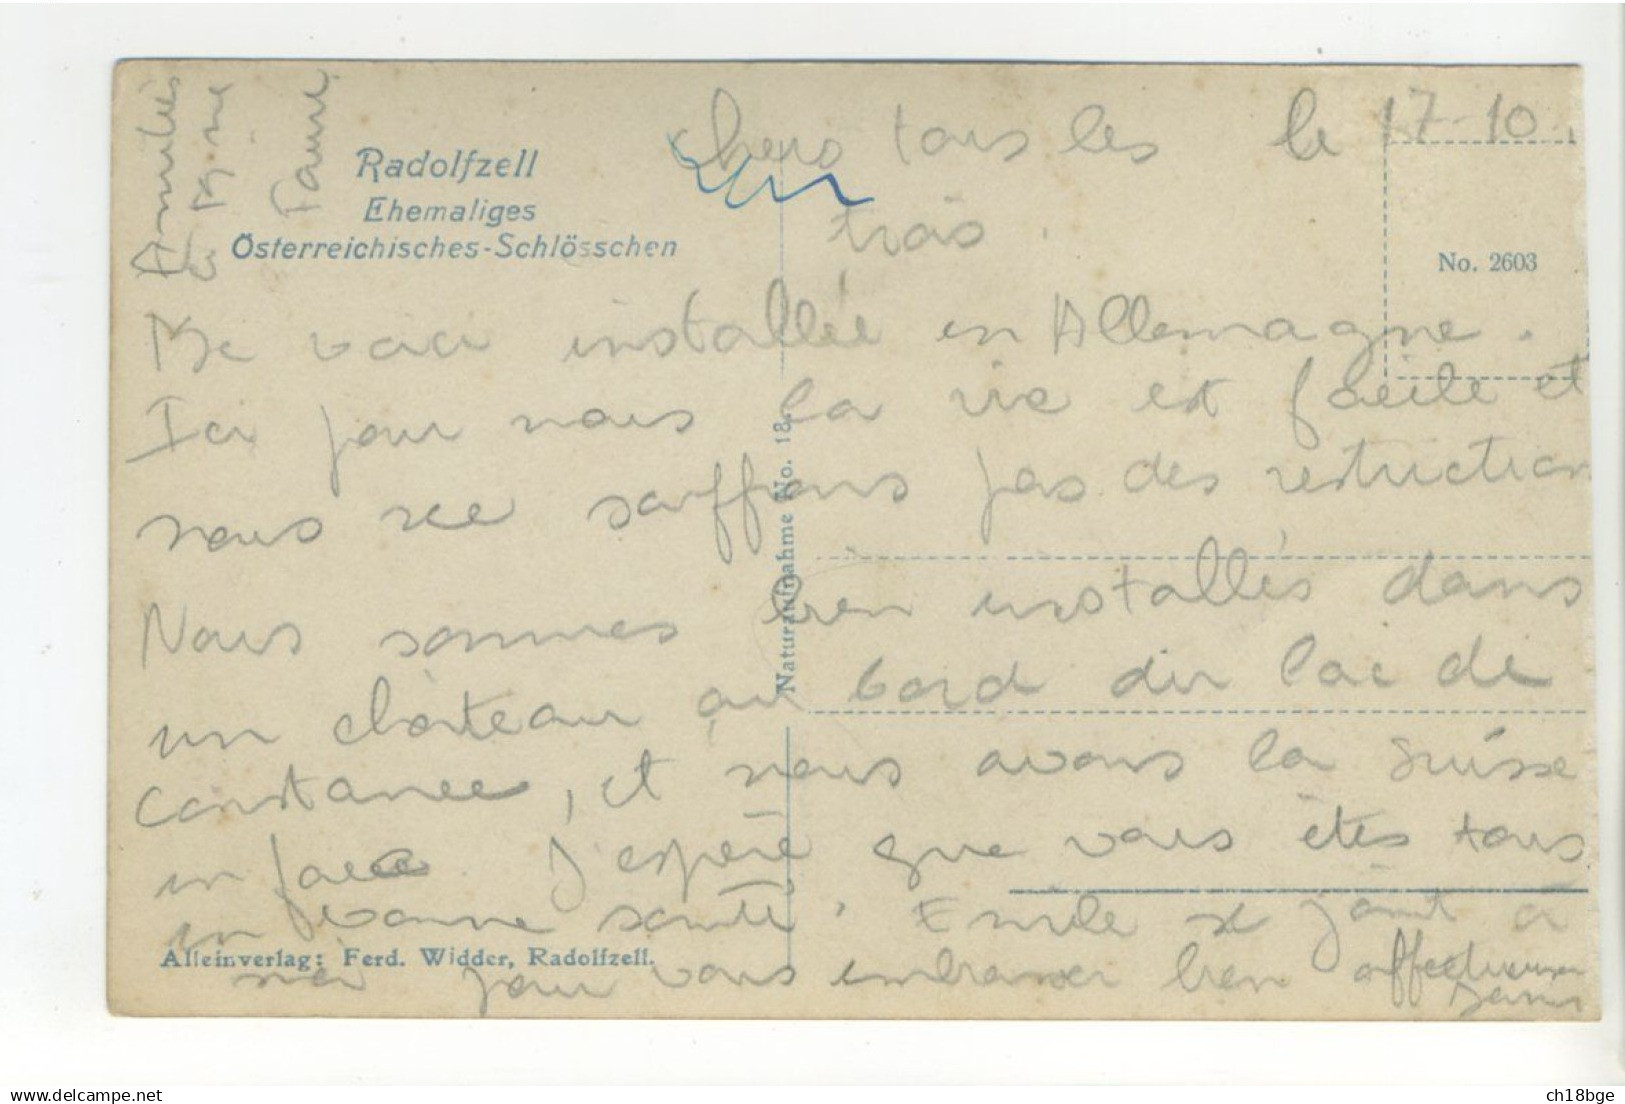 Amitiés
Radolfzell
Ehemaliges
Österreichisches-Schlösschen
Chers tous les le 17-10.
trois.
No. 2603
Me voici installée en Allemagne.
Ici pour nous la vie est facile et
nous ne souffrons pas des restriction
Nous sommes bien installés dans
un château au bord du lac de
Constance, et nous avons la Suisse
en face J'espère que vous êtes tous
en bonne santé. Emile se joint à
moi pour vous embrasser bien affectueusement
Naturaufnahme No. 18.
Alleinverlag: Ferd. Widder, Radolfzell.
ch18bge